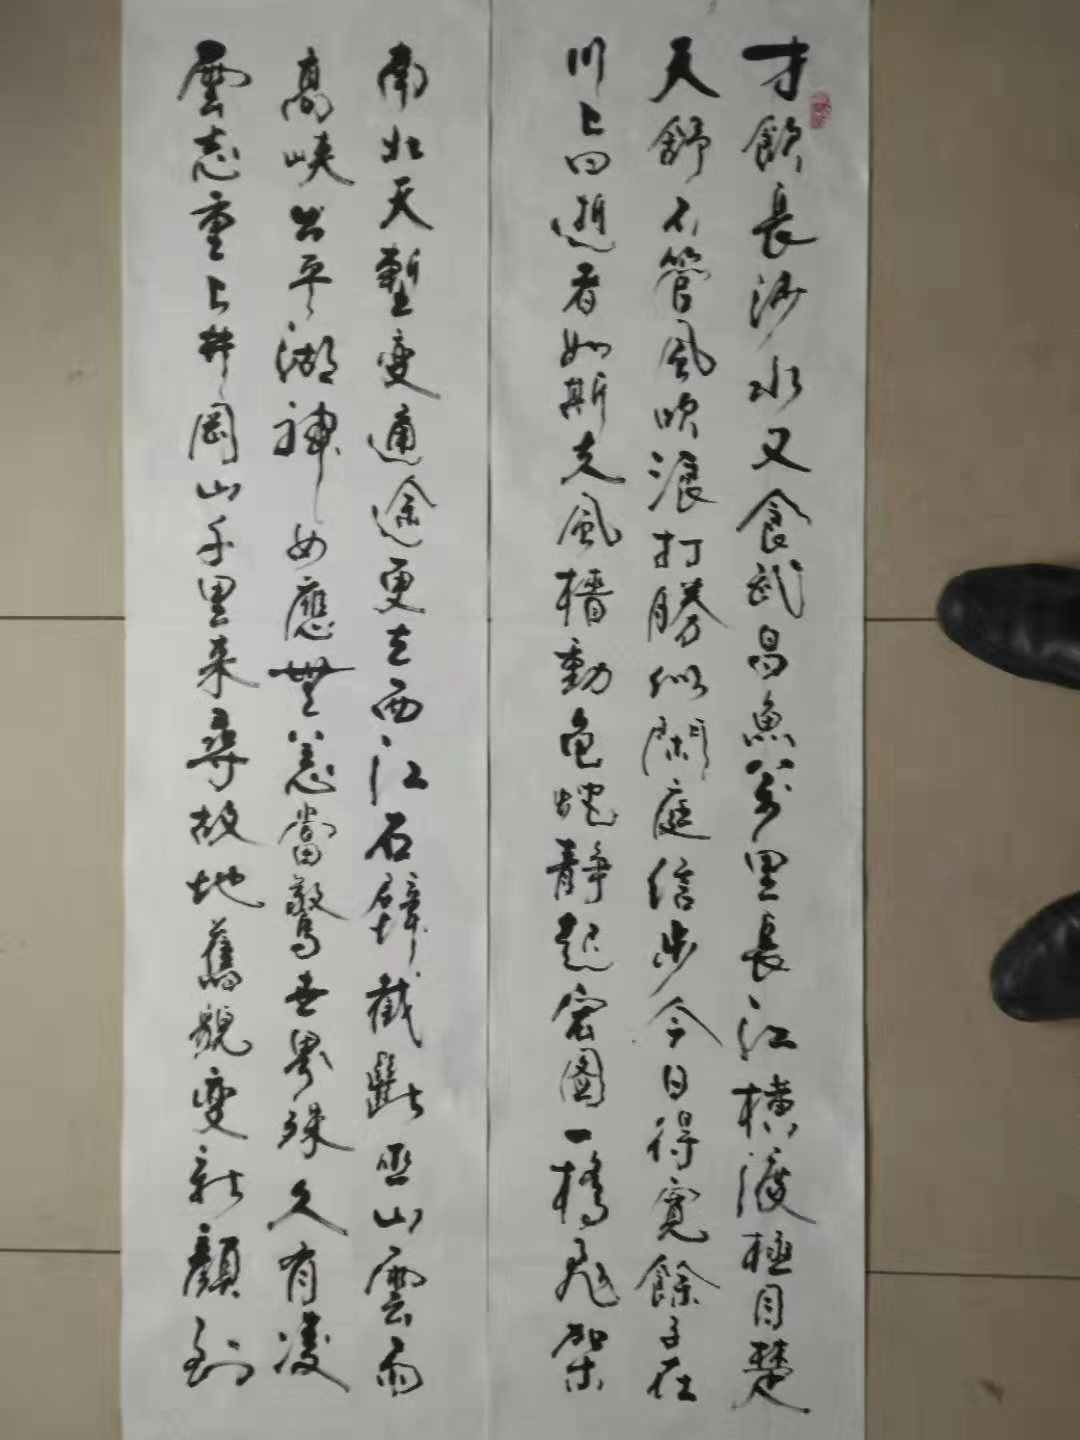 才飲長沙水又食武昌魚萬里長江橫渡極目楚
天舒不管風吹浪打勝似閒庭信步今日得寬餘子在
川上曰逝者如斯夫風檣動龜蛇靜起宏圖一橋飛架
南北天塹變通途更立西江石壁截斷巫山雲雨
高峽出平湖神女應無恙當驚世界殊久有凌
雲志重上井岡山千里來尋故地舊貌變新顏到